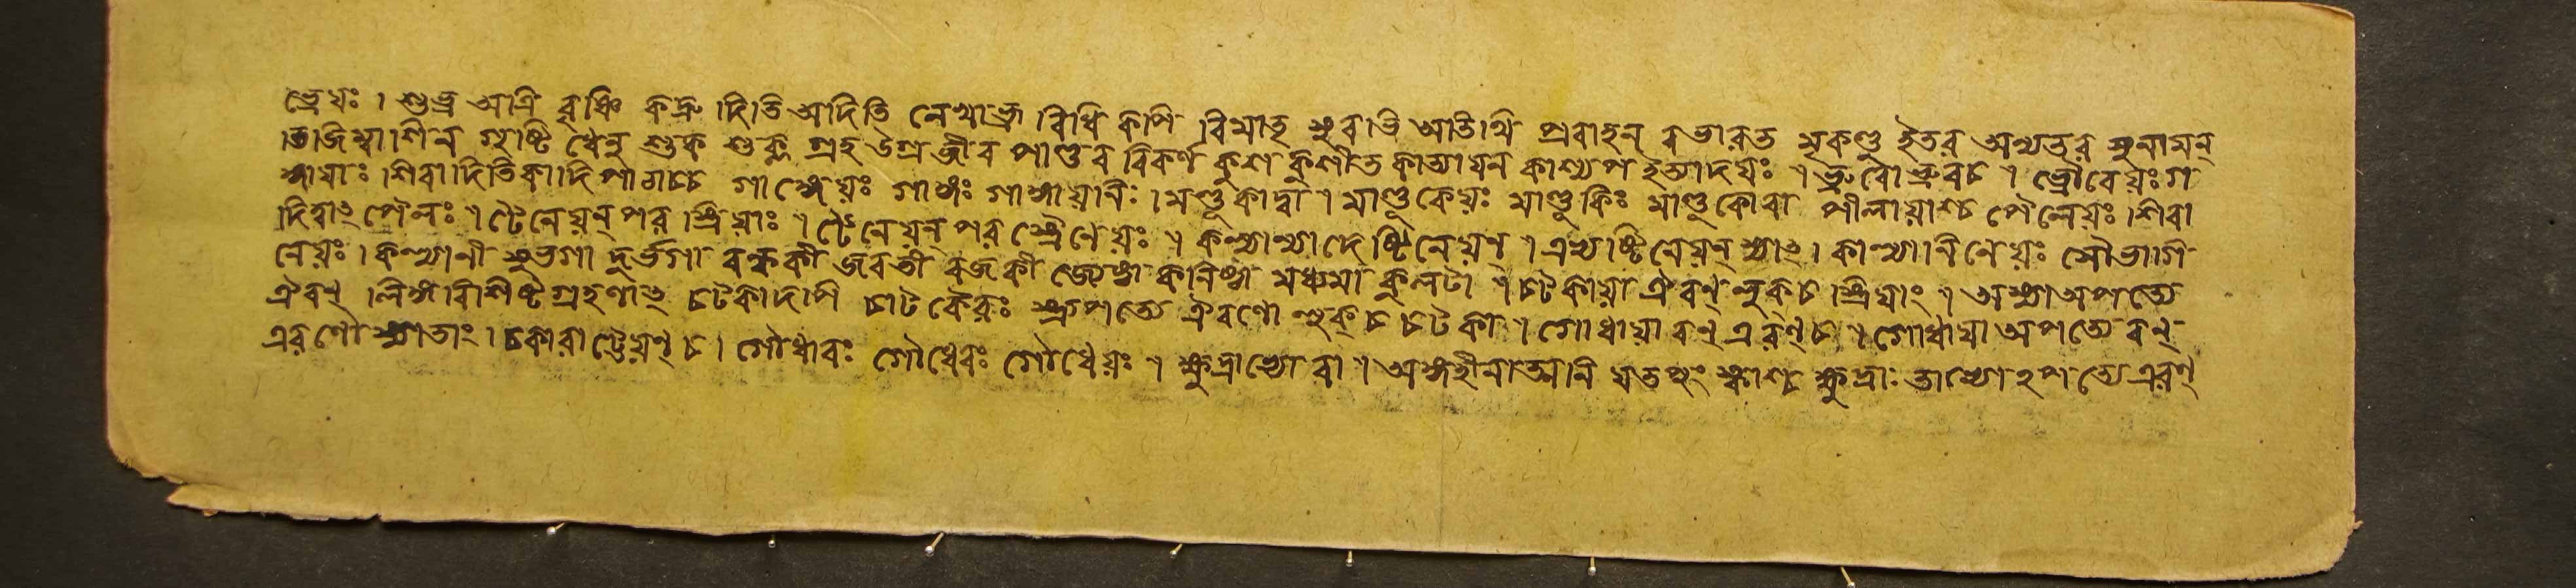 ভ্রেয়ঃ । শুভ্র অত্রি বৃষ্ণি কদ্রু দিতি অদিতি লেখাভ্রূ বিধি কপি বিমাতৃ সুবাভি অতিথি প্রবাহন্ ভারত মৃকণ্ডু ইতর অন্যতর সুনামন্
অজিহ্বাশিন গৃষ্টি ধেনু শুক শুক্ল গ্রহ উগ্র জীব পাণ্ডব বিকর্ণ কুশ কুশীত কাত্যায়ন কাশ্যপ ইত্যাদয়ঃ । ভ্রুবোভ্রুবচ । ভ্রৌবেয়ঃ গ
ঙ্গায়াঃ শিবাদিতিকাদিপাঠাচ্চ গাঙ্গেয়ঃ গাঙ্গঃ গাঙ্গায়নিঃ । মণ্ডূকাদ্বা । মাণ্ডূকেয়ঃ মাণ্ডূকিঃ মাণ্ডূকোবা পীলায়াশ্চ পৈলেয়ঃ শিবা
দিত্বাৎ পৈলঃ । ঢৈনেয়ন্ পর স্ত্রিয়াঃ । ঢৈনেয়ন্ পর স্ত্রৈণেয়ঃ । কল্যাণ্যাদেষ্টিনেয়ণ্ । এষ্বষ্টিনেয়ন্ স্যাৎ । কাল্যাণিনেয়ঃ সৌভাগি
নেয়ঃ । কল্যাণী সুভগা দুর্ভগা বন্ধকী জরতী রজকী জ্যেষ্ঠা কনিষ্ঠা মধ্যমা কুলটা । চটকায়া ঐরণ্ লুক্ চ স্ত্রিয়াং । অস্যা অপত্যে
ঐরণ্ লিঙ্গবিশিষ্টগ্রহণাৎ চটকাদপি চাটকৈরঃ স্ত্র্যপত্যে ঐরণো লুক্ চ চটকা । গোধায়া রণ্ এরণ্ চ । গোধায়া অপত্যে রণ্
এরণৌ স্যাতাং । চকারাড্ঢেয়ণ্ চ । গৌধারঃ গৌধেরঃ গৌধেয়ঃ । ক্ষুদ্রাভ্যো বা । অঙ্গহীনা অনিয়তপুংস্কাশ্চ ক্ষুদ্রাঃ তাভ্যোঽপত্যে এরণ্